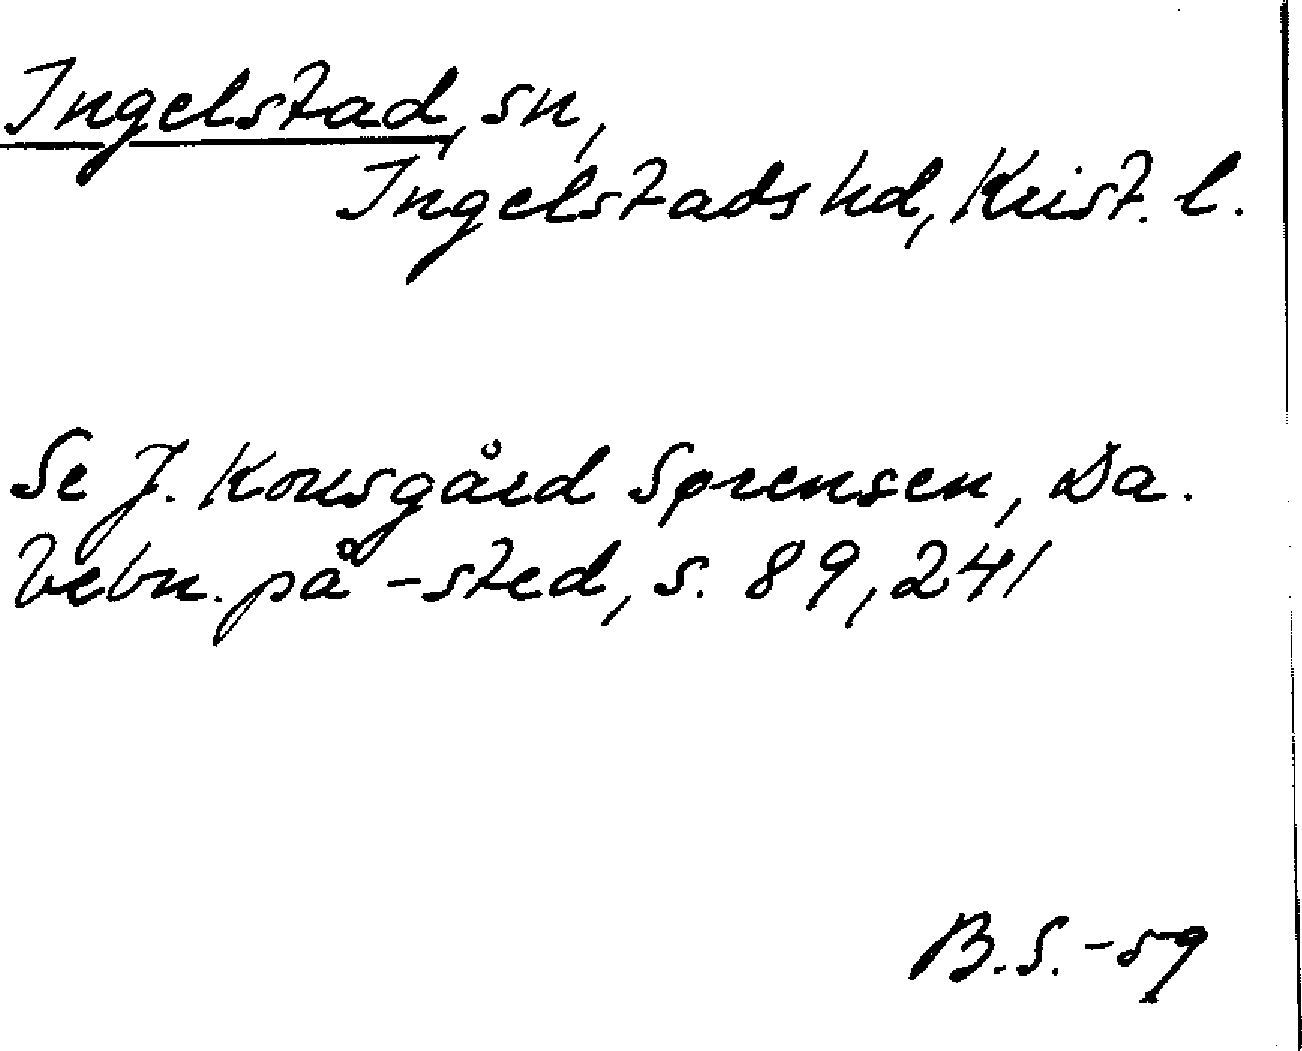 Ingelstad, sn,
Ingelstads hd, Krist. l.
Se J. Kousgård Sørensen, Da.
bebn. på -sted, s. 89, 241
B.S. -59